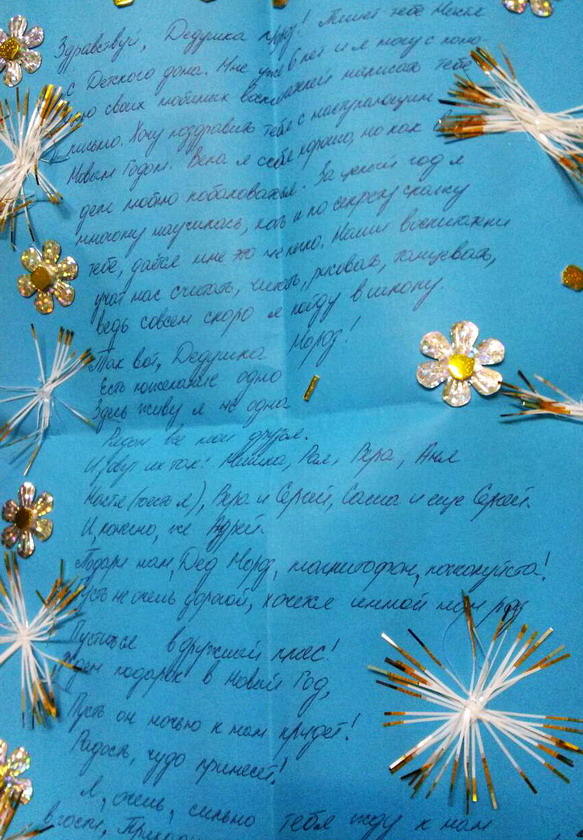 Здравствуй, Дедушка Мороз! Пишет тебе Настя
с Детского дома. Мне уже 6 лет и я могу с помо-
ю своих любимых воспитателей написать тебе
письмо. Хочу поздравить тебя с наступающим
Новым Годом. Вела я себя хорошо, но как
дети люблю побаловаться. За целый год я
многому научилась, хоть и по секрету скажу
тебе, даётся мне это не легко. Наши воспитатели
учат нас считать, читать, рисовать, танцевать,
ведь совсем скоро я пойду в школу.
Так вот, Дедушка Мороз!
Есть пожелание одно
Здесь живу я не одна
Рядом все мои друзья.
И зовут их так: Мишка, Рая, Вера, Аня
Настя (тоесть я), Вера и Сергей, Саша и еще Сергей.
И, конечно, же Андрей.
Подари нам, Дед Мороз, магнитофон, пожалуйста!
Пусть не очень дорогой, хочется зимой нам
Пуститься в дружный пляс!
Ждем подарок в Новый Год,
Пусть он ночью к нам придет!
Радость, чудо принесет!
Я, очень, сильно тебя жду к нам
в гости,